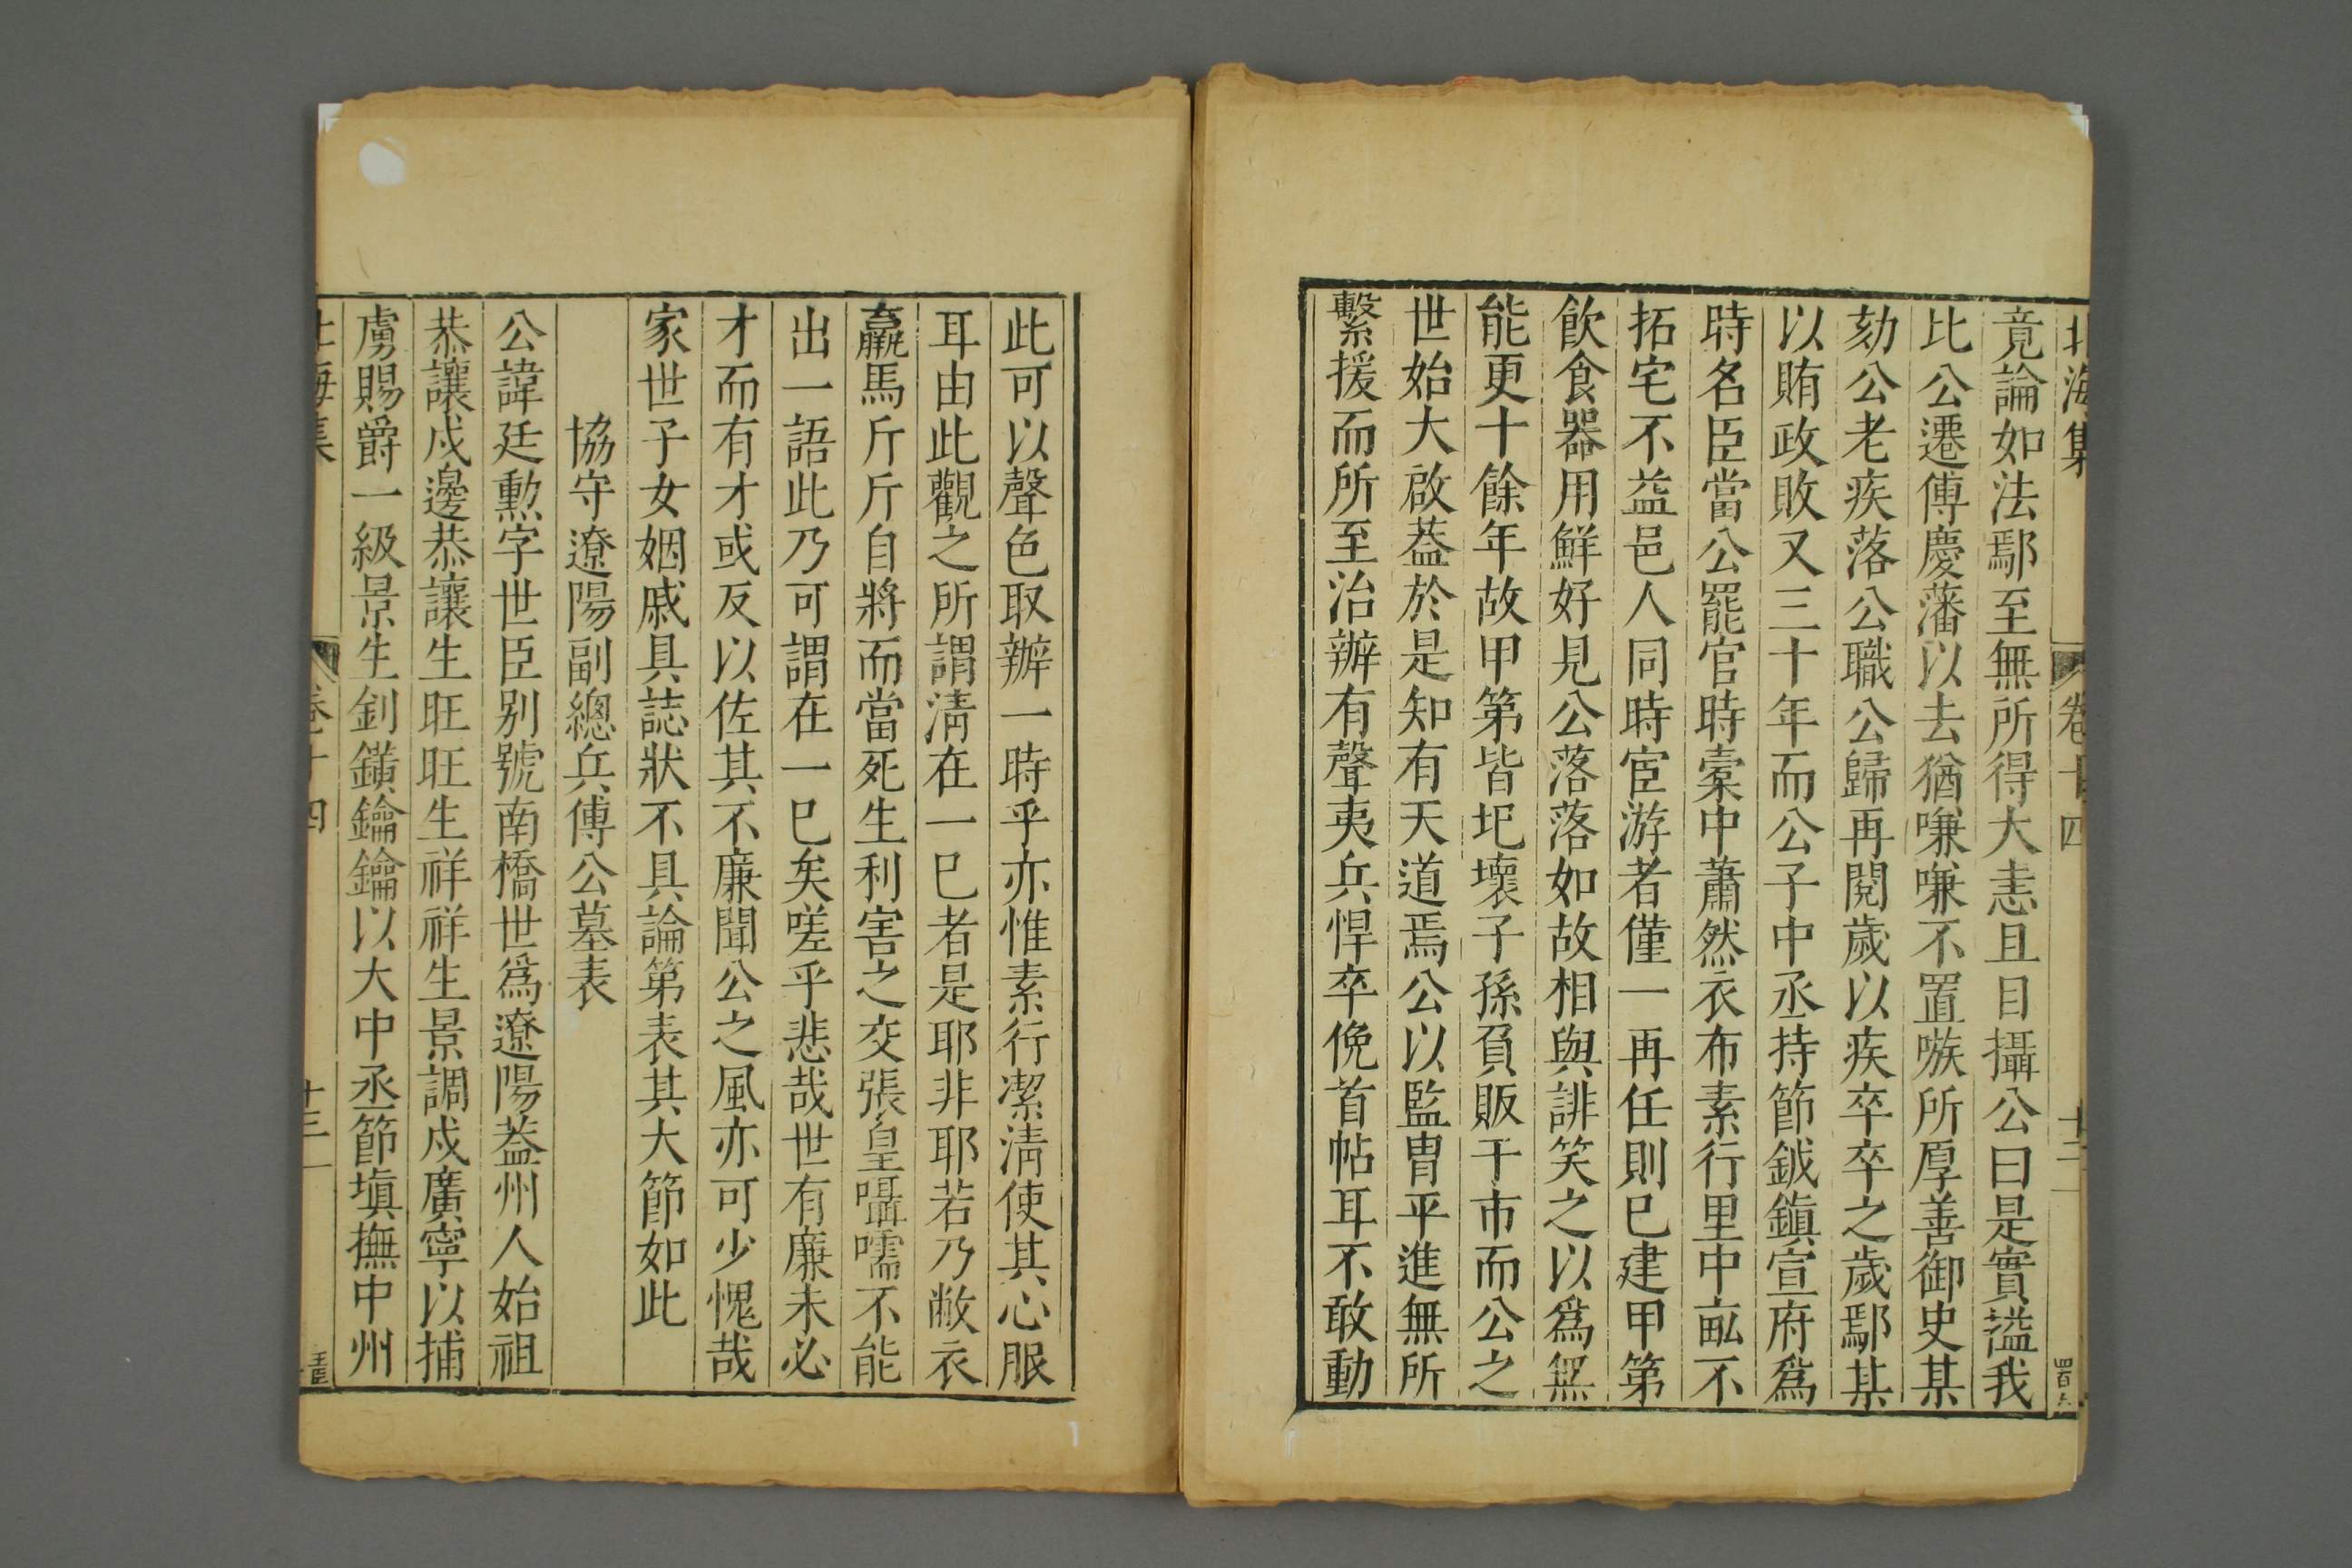 北海集 卷十四 十二
竟論如法鄢至無所得大恚且目攝公曰是實謚我
比公遷傅慶藩以去猶嗛嗛不置嗾所厚善御史某
劾公老疾落公職公歸再閱歲以疾卒卒之歲鄢某
以賄政敗又三十年而公子中丞持節鉞鎮宣府爲
時名臣當公罷官時橐中蕭然衣布素行里中畝不
拓宅不益邑人同時宦游者僅一再任則已建甲第
飲食器用鮮好見公落落如故相與誹笑之以爲無
能更十餘年故甲第皆圯壞子孫負販于市而公之
世始大啟葢於是知有天道焉公以監胄平進無所
繫援而所至治辦有聲夷兵悍卒俛首帖耳不敢動
此可以聲色取辦一時乎亦惟素行潔淸使其心服
耳由此觀之所謂淸在一巳者是耶非耶若乃敝衣
羸馬斤斤自將而當死生利害之交張皇囁嚅不能
出一語此乃可謂在一巳矣嗟乎悲哉世有廉未必
才而有才或反以佐其不廉聞公之風亦可少愧哉
家世子女姻戚具誌狀不具論第表其大節如此
協守遼陽副總兵傅公墓表
公諱廷勲字世臣别號南橋世爲遼陽葢州人始祖
恭讓戍邊恭讓生旺旺生祥祥生景調戍廣寧以捕
虜賜爵一級景生釗鐄鑰鑰以大中丞節塡撫中州
北海集 卷十四 十三